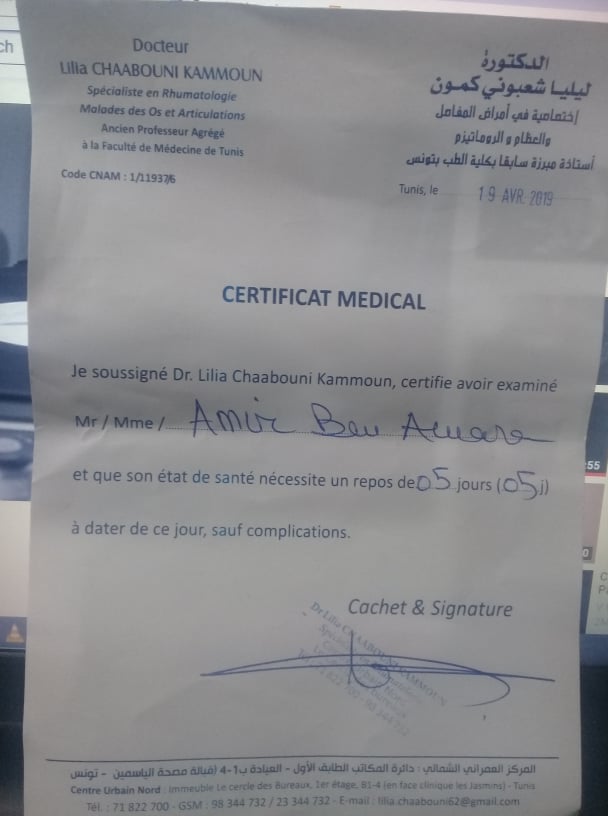 Docteur
Lilia CHAABOUNI KAMMOUN
Spécialiste en Rhumatologie
Malades des Os et Articulations
Ancien Professeur Agrégé
à la Faculté de Médecine de Tunis
Code CNAM : 1/11937/6
الدكتورة
ليليا شعبوني كمون
إختصاصية في أمراض المفاصل
والعظام و الروماتيزم
أستاذة مبرزة سابقا بكلية الطب بتونس
Tunis, le 19 AVR. 2019
CERTIFICAT MEDICAL
Je soussigné Dr. Lilia Chaabouni Kammoun, certifie avoir examiné
Mr / Mme / Amir Ben Amara
et que son état de santé nécessite un repos de 05 jours (05j)
à dater de ce jour, sauf complications.
Cachet & Signature
Dr Lilia CHAABOUNI KAMMOUN
Tél: 71 822 700 - 98 344 732
المركز العمراني الشمالي : دائرة المكاتب الطابق الأول - العيادة ب1-4 (قبالة مصحة الياسمين - تونس
Centre Urbain Nord : Immeuble Le cercle des Bureaux, 1er étage, B1-4 (en face clinique les Jasmins) - Tunis
Tél. : 71 822 700 - GSM : 98 344 732 / 23 344 732 - E-mail : lilia.chaabouni62@gmail.com